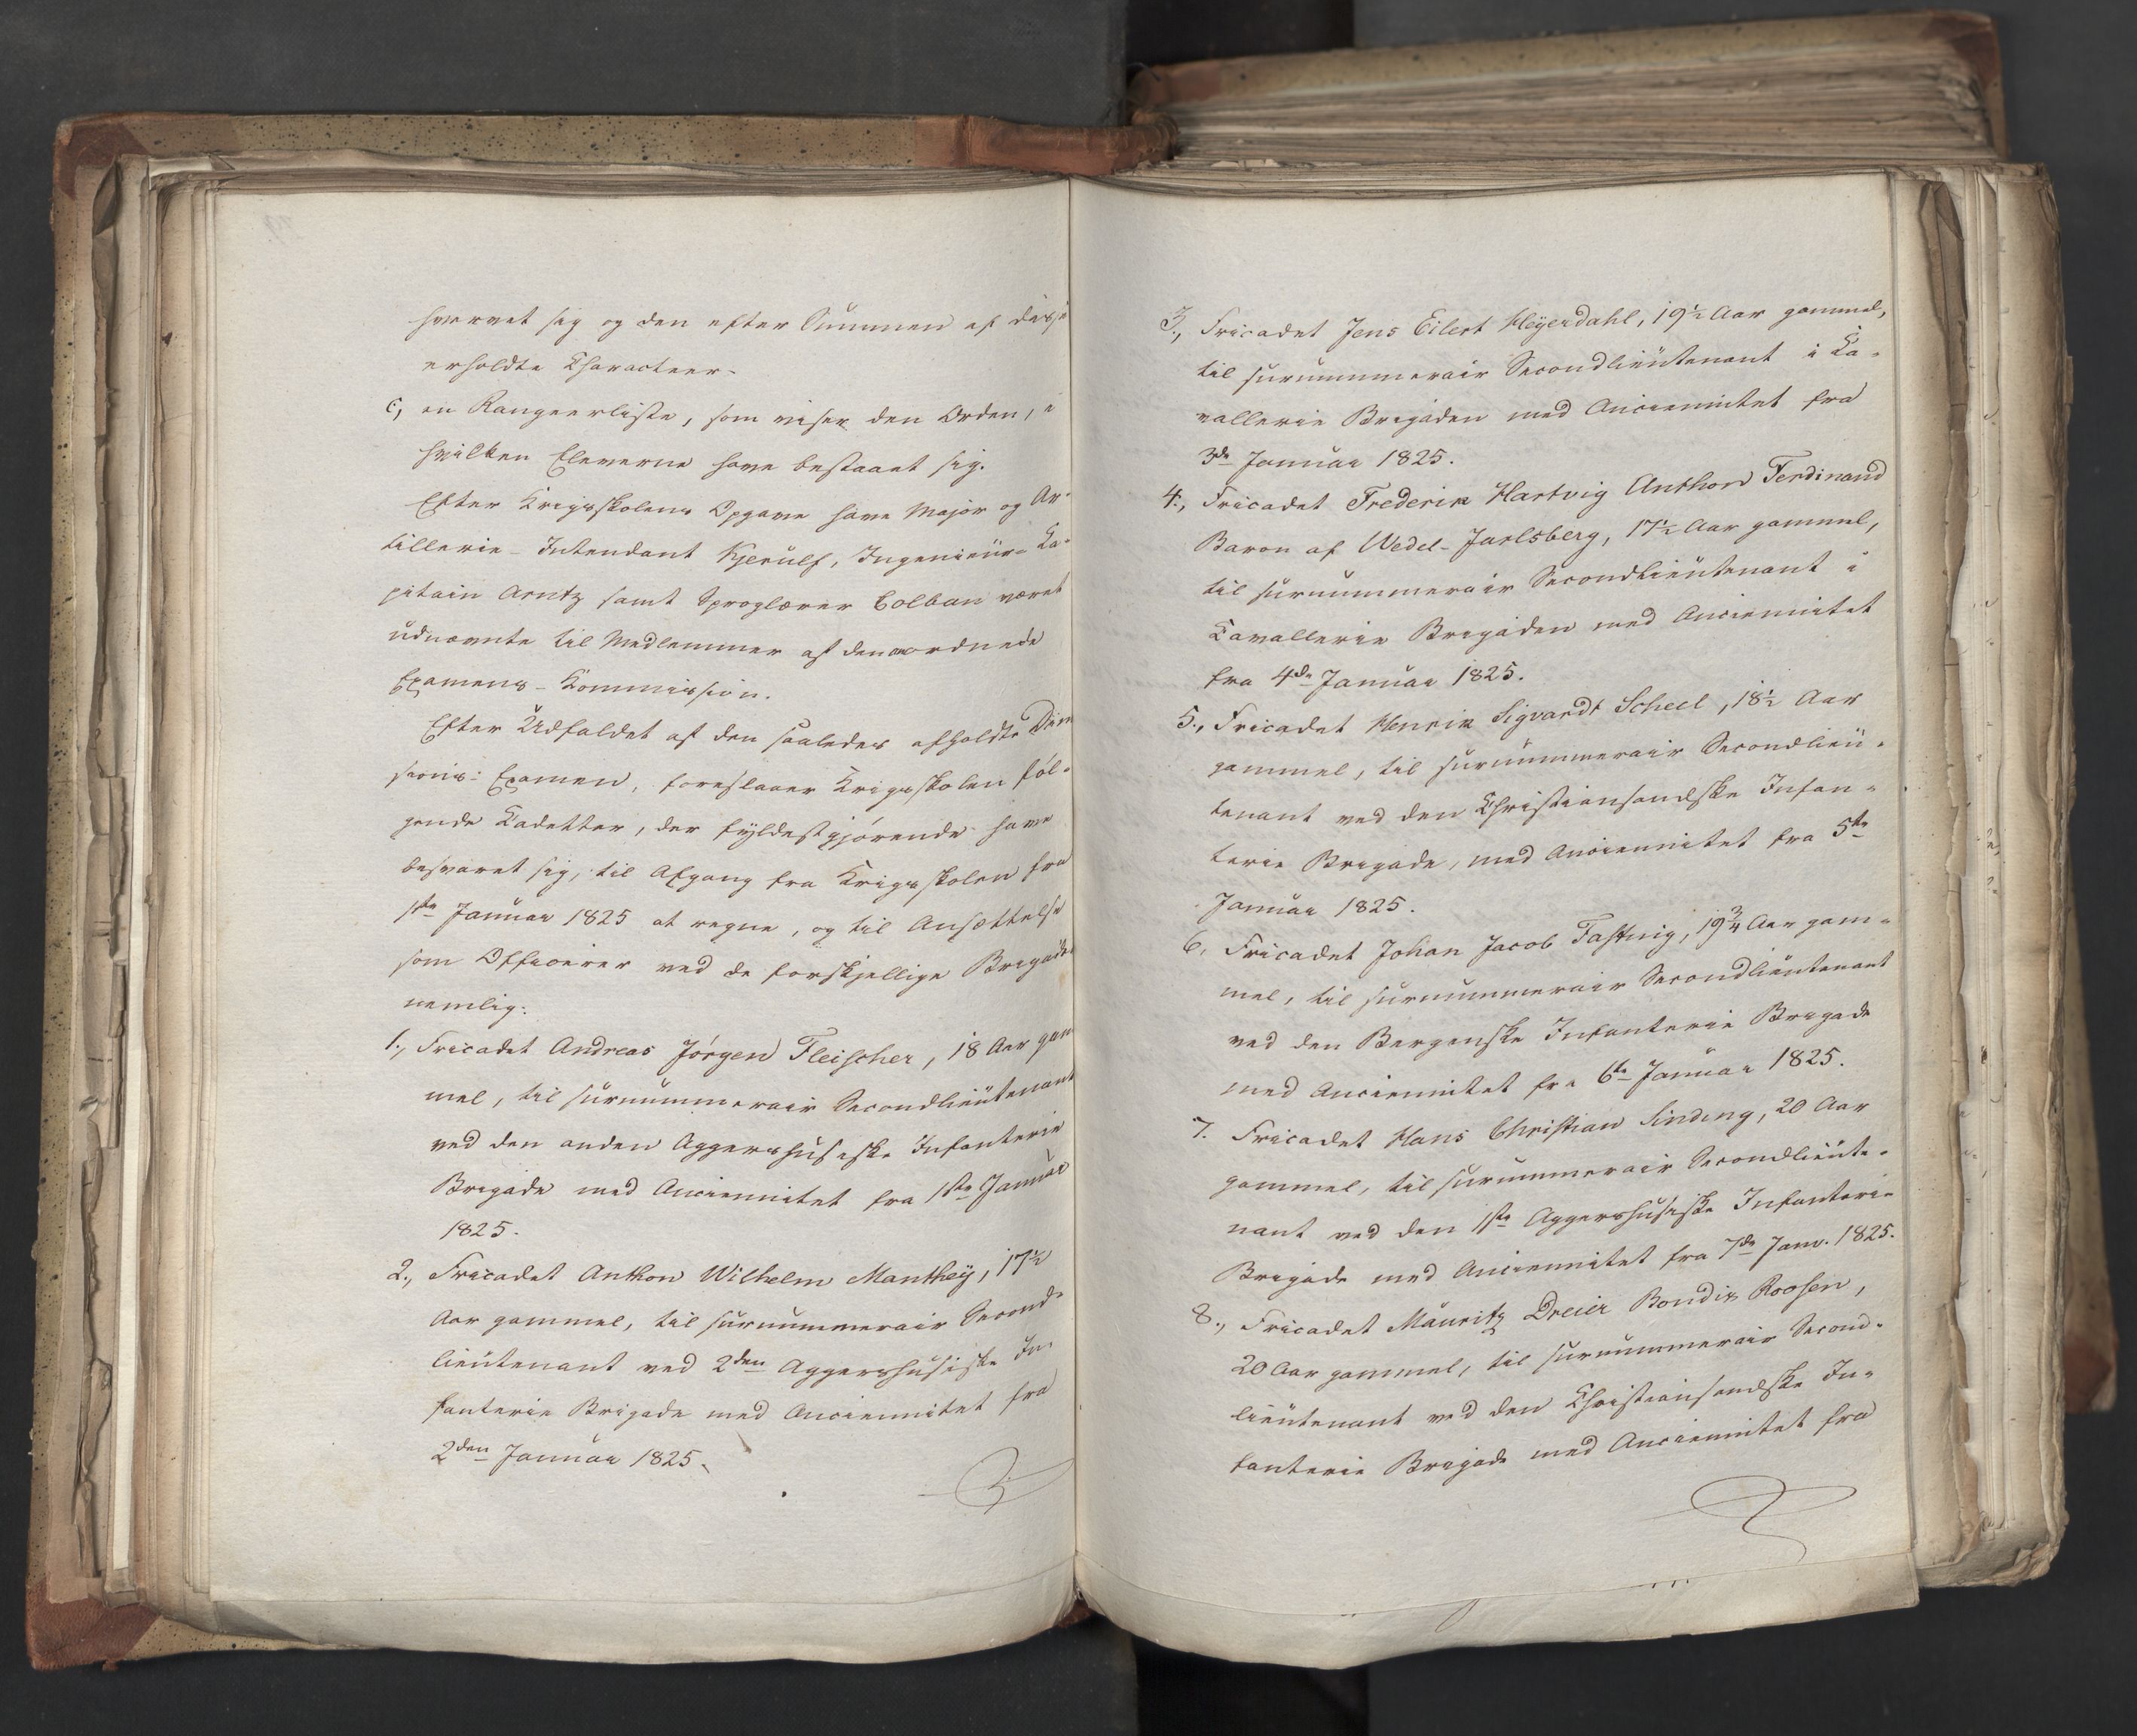 hvervet sig og den efter Summen af disse
erholdte Characteer.
c, en Rangeerliste, som viser den Orden, i
hvilken Eleverne have bestaaet sig.
Efter Krigsskolens Opgave have Major og Ar-
tillerie-Intendant Kjerulf, Ingenieur-Ka-
pitain Arntz samt Sproglærer Colban været
udnævnte til Medlemmer af den anordnede
Examens-Kommission.
Efter Udfaldet af den saaledes afholdte Dim
sions-Examen, foreslaaer Krigsskolen føl-
gende Kadetter, der fyldestgjørende have
besvaret sig, til Afgang fra Krigsskolen fra
1ste Januar 1825 at regne, og til Ansættelse
som Officerer ved de forskjellige Brigader
nemlig:
1., Fricadet Andreas Jörgen Fleischer, 18 Aar gam
mel, til surnummerair Secondlieutenant
ved den anden Aggershusiske Infanterie
Brigade med Anciennitet fra 1ste Januar
1825.
2., Fricadet Anthon Wilhelm Manthey, 17½
Aar gammel, til surnummerair Second-
lieutenant ved 2den Aggershusiske In-
fanterie Brigade med Anciennitet fra
2den Januar 1825.
3., Fricadet Jens Eilert Heyerdahl, 19½ Aar gammel,
til surnummerair Secondlieutenant i Ca-
vallerie Brigaden med Anciennitet fra
3de Januar 1825.
4., Fricadet Frederik Hartvig Anthon Ferdinand
Baron af Wedel-Jarlsberg, 17½ Aar gammel,
til surnummerair Secondlieutenant i
Cavallerie Brigaden med Anciennitet
fra 4de Januar 1825.
5., Fricadet Henrik Sigvardt Scheel, 18½ Aar
gammel, til surnummerair Secondlieu-
tenant ved den Christiansandske Infan-
terie Brigade, med Anciennitet fra 5te
Januar 1825.
6, Fricadet Johan Jacob Fastnig, 19¾ Aar gam-
mel, til surnummerair Secondlieutenant
ved den Bergenske Infanterie Brigade
med Anciennitet fra 6te Januar 1825.
7. Fricadet Hans Christian Sinding, 20 Aar
gammel, til surnummerair Secondlieute-
nant ved den 1ste Aggershusiske Infanterie
Brigade med Anciennitet fra 7de Janv. 1825.
8., Fricadet Mauritz Dreier Bondix Roosen,
20 Aar gammel, til surnummerair Second-
lieutenant ved den Christiansandske In-
fanterie Brigade med Anciennitet fra